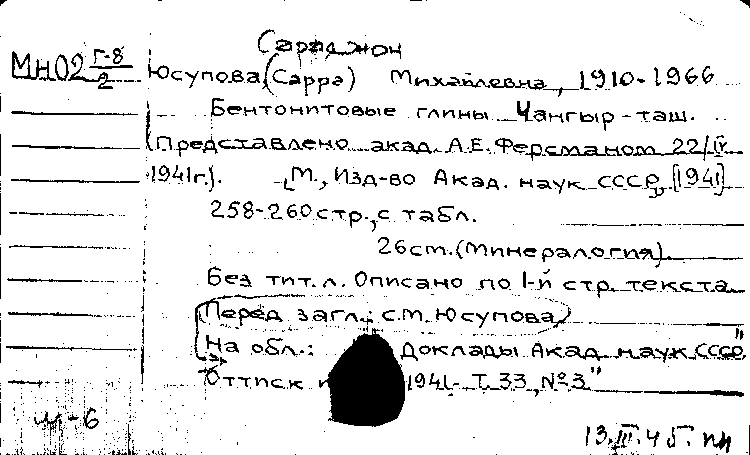 Сараджон
МнО2 Г-8/2 Юсупова, (Сарра) Михайлевна, 1910-1966
Бентонитовые глины Чангыр-таш.
(Представлено акад. А.Е. Ферсманом 22/IV
1941г.). М., Изд-во Акад. наук СССР, [1941]
258-260 стр., с табл.
26 cm. (Минералогия).
Без тит. л. Описано по 1-й стр. текста
Перед загл.: С.М. Юсупова
На обл.: Доклады Акад. наук СССР,
Оттиск 1941- Т. 33, №3"
м-6
13.III.45.